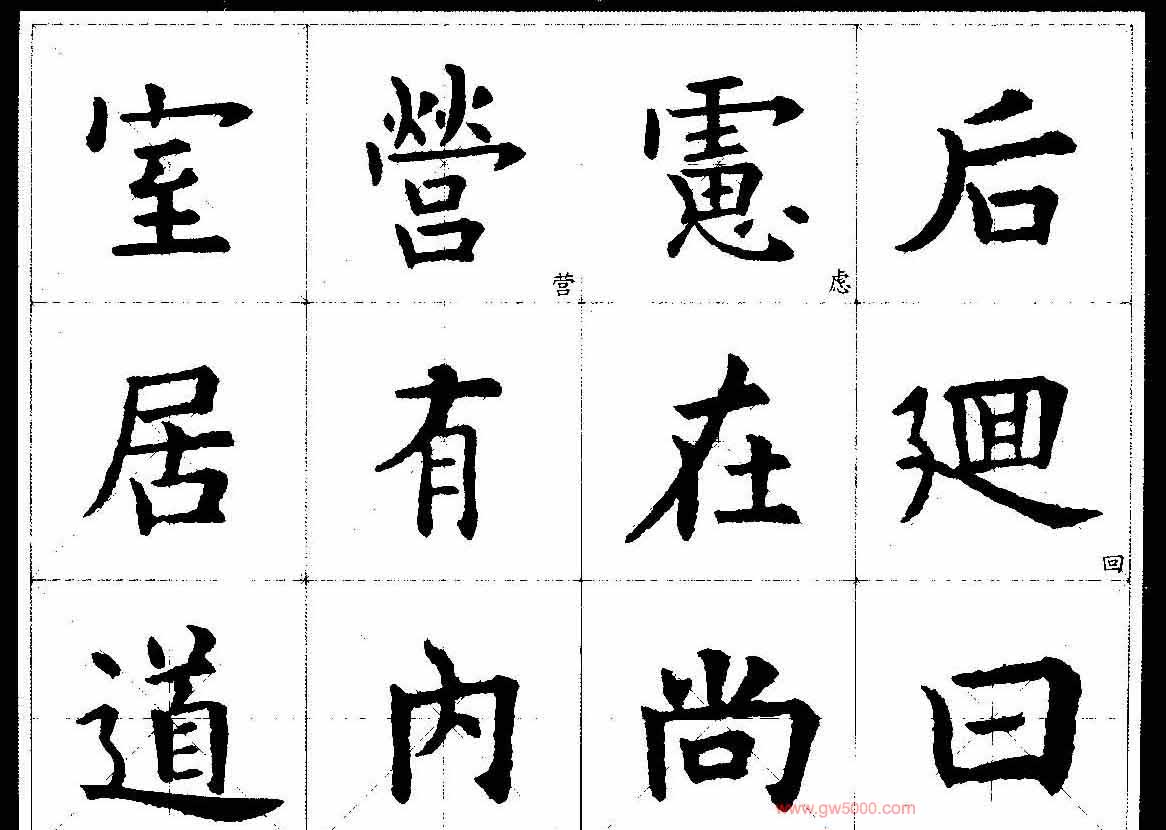 室 營 营 慮 虑 后
居 有 在 廻 回
道 內 尚 曰
www.gw5000.com